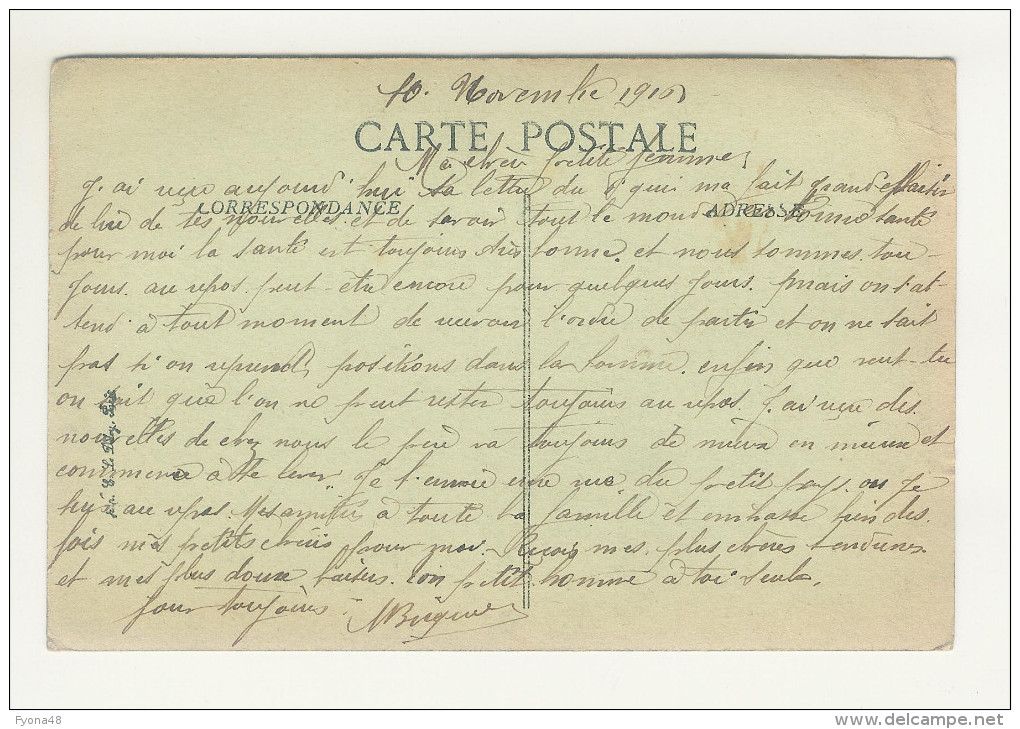 10. Novembre 1916
CARTE POSTALE
Ma chère petite femme,
J'ai reçu aujourd'hui ta lettre du 5 qui ma fait grand plaisir
CORRESPONDANCE
ADRESSE
de lire de tes nouvelles et de savoir tout le monde en bonne santé
pour moi la santé est toujours très bonne. et nous sommes tou-
jours. au repos. peut-etre encore pour quelques jours. mais on s'at-
tend à tout moment de recevoir l'ordre de partir et on ne sait
pas si on reprend positions dans la Somme. enfin que veut-tu
on sait que l'on ne peut rester toujours au repos. J'ai reçu des
nouvelles de chez nous le père va toujours de mieux en mieux et
commence à se lever. Je t'envoie une vue du petit pays. ou je
suis au repos. Mes amitiés à toute la famille et embrasse bien des
fois mes petits chéris pour moi. Reçois mes. plus chères tendresses
et mes plus doux baisers. ton petit homme à toi seule,
pour toujours
Fyona48
www.delcampe.net